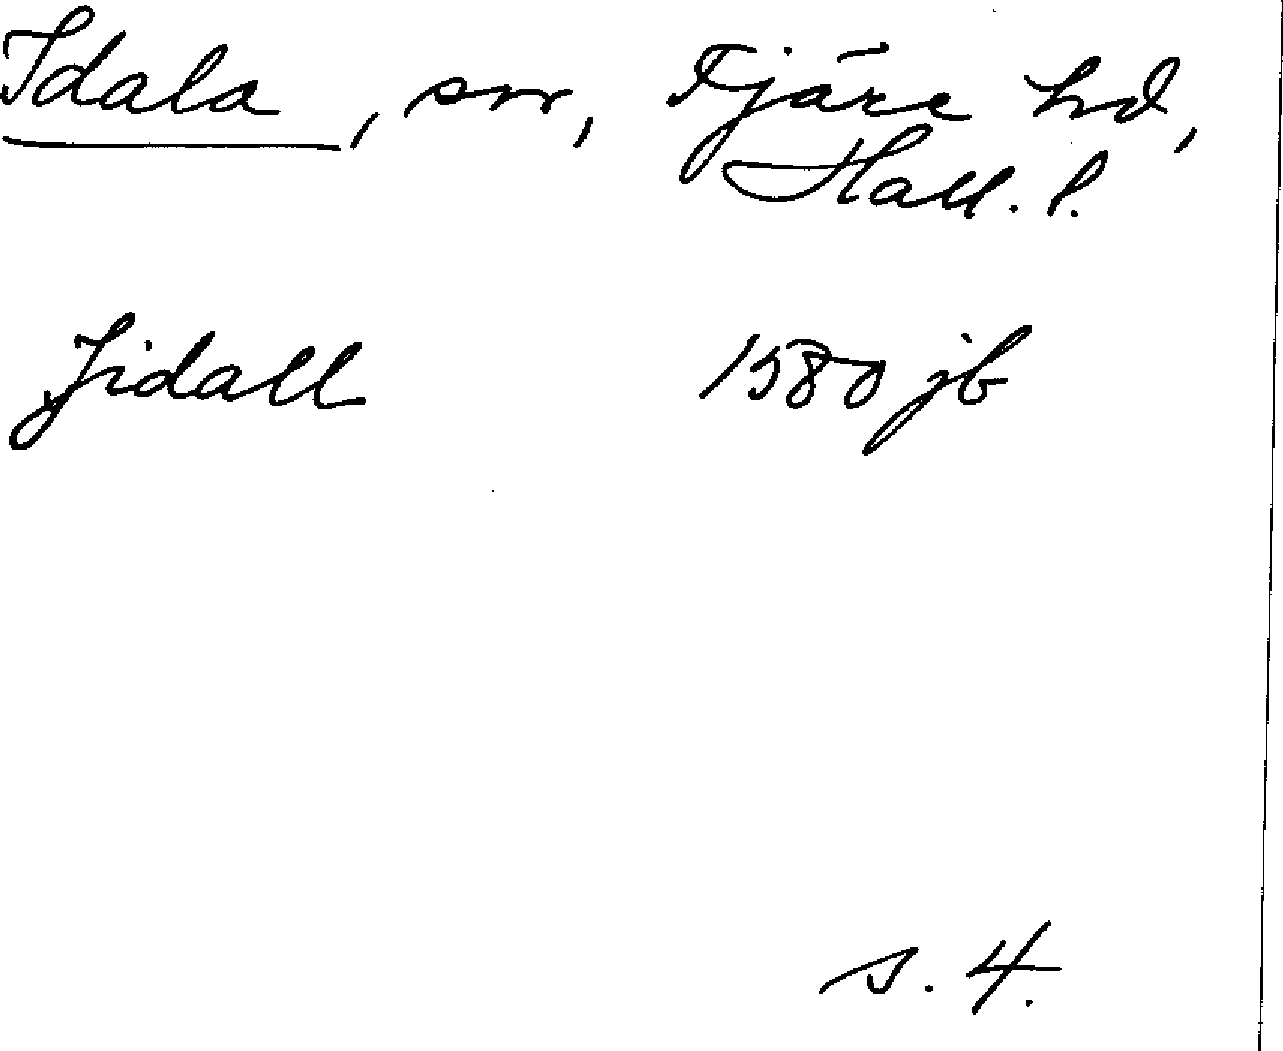 Idala, sn, Fjäre hd,
Hall. l.
Jidall 1580 jb
s. 4.